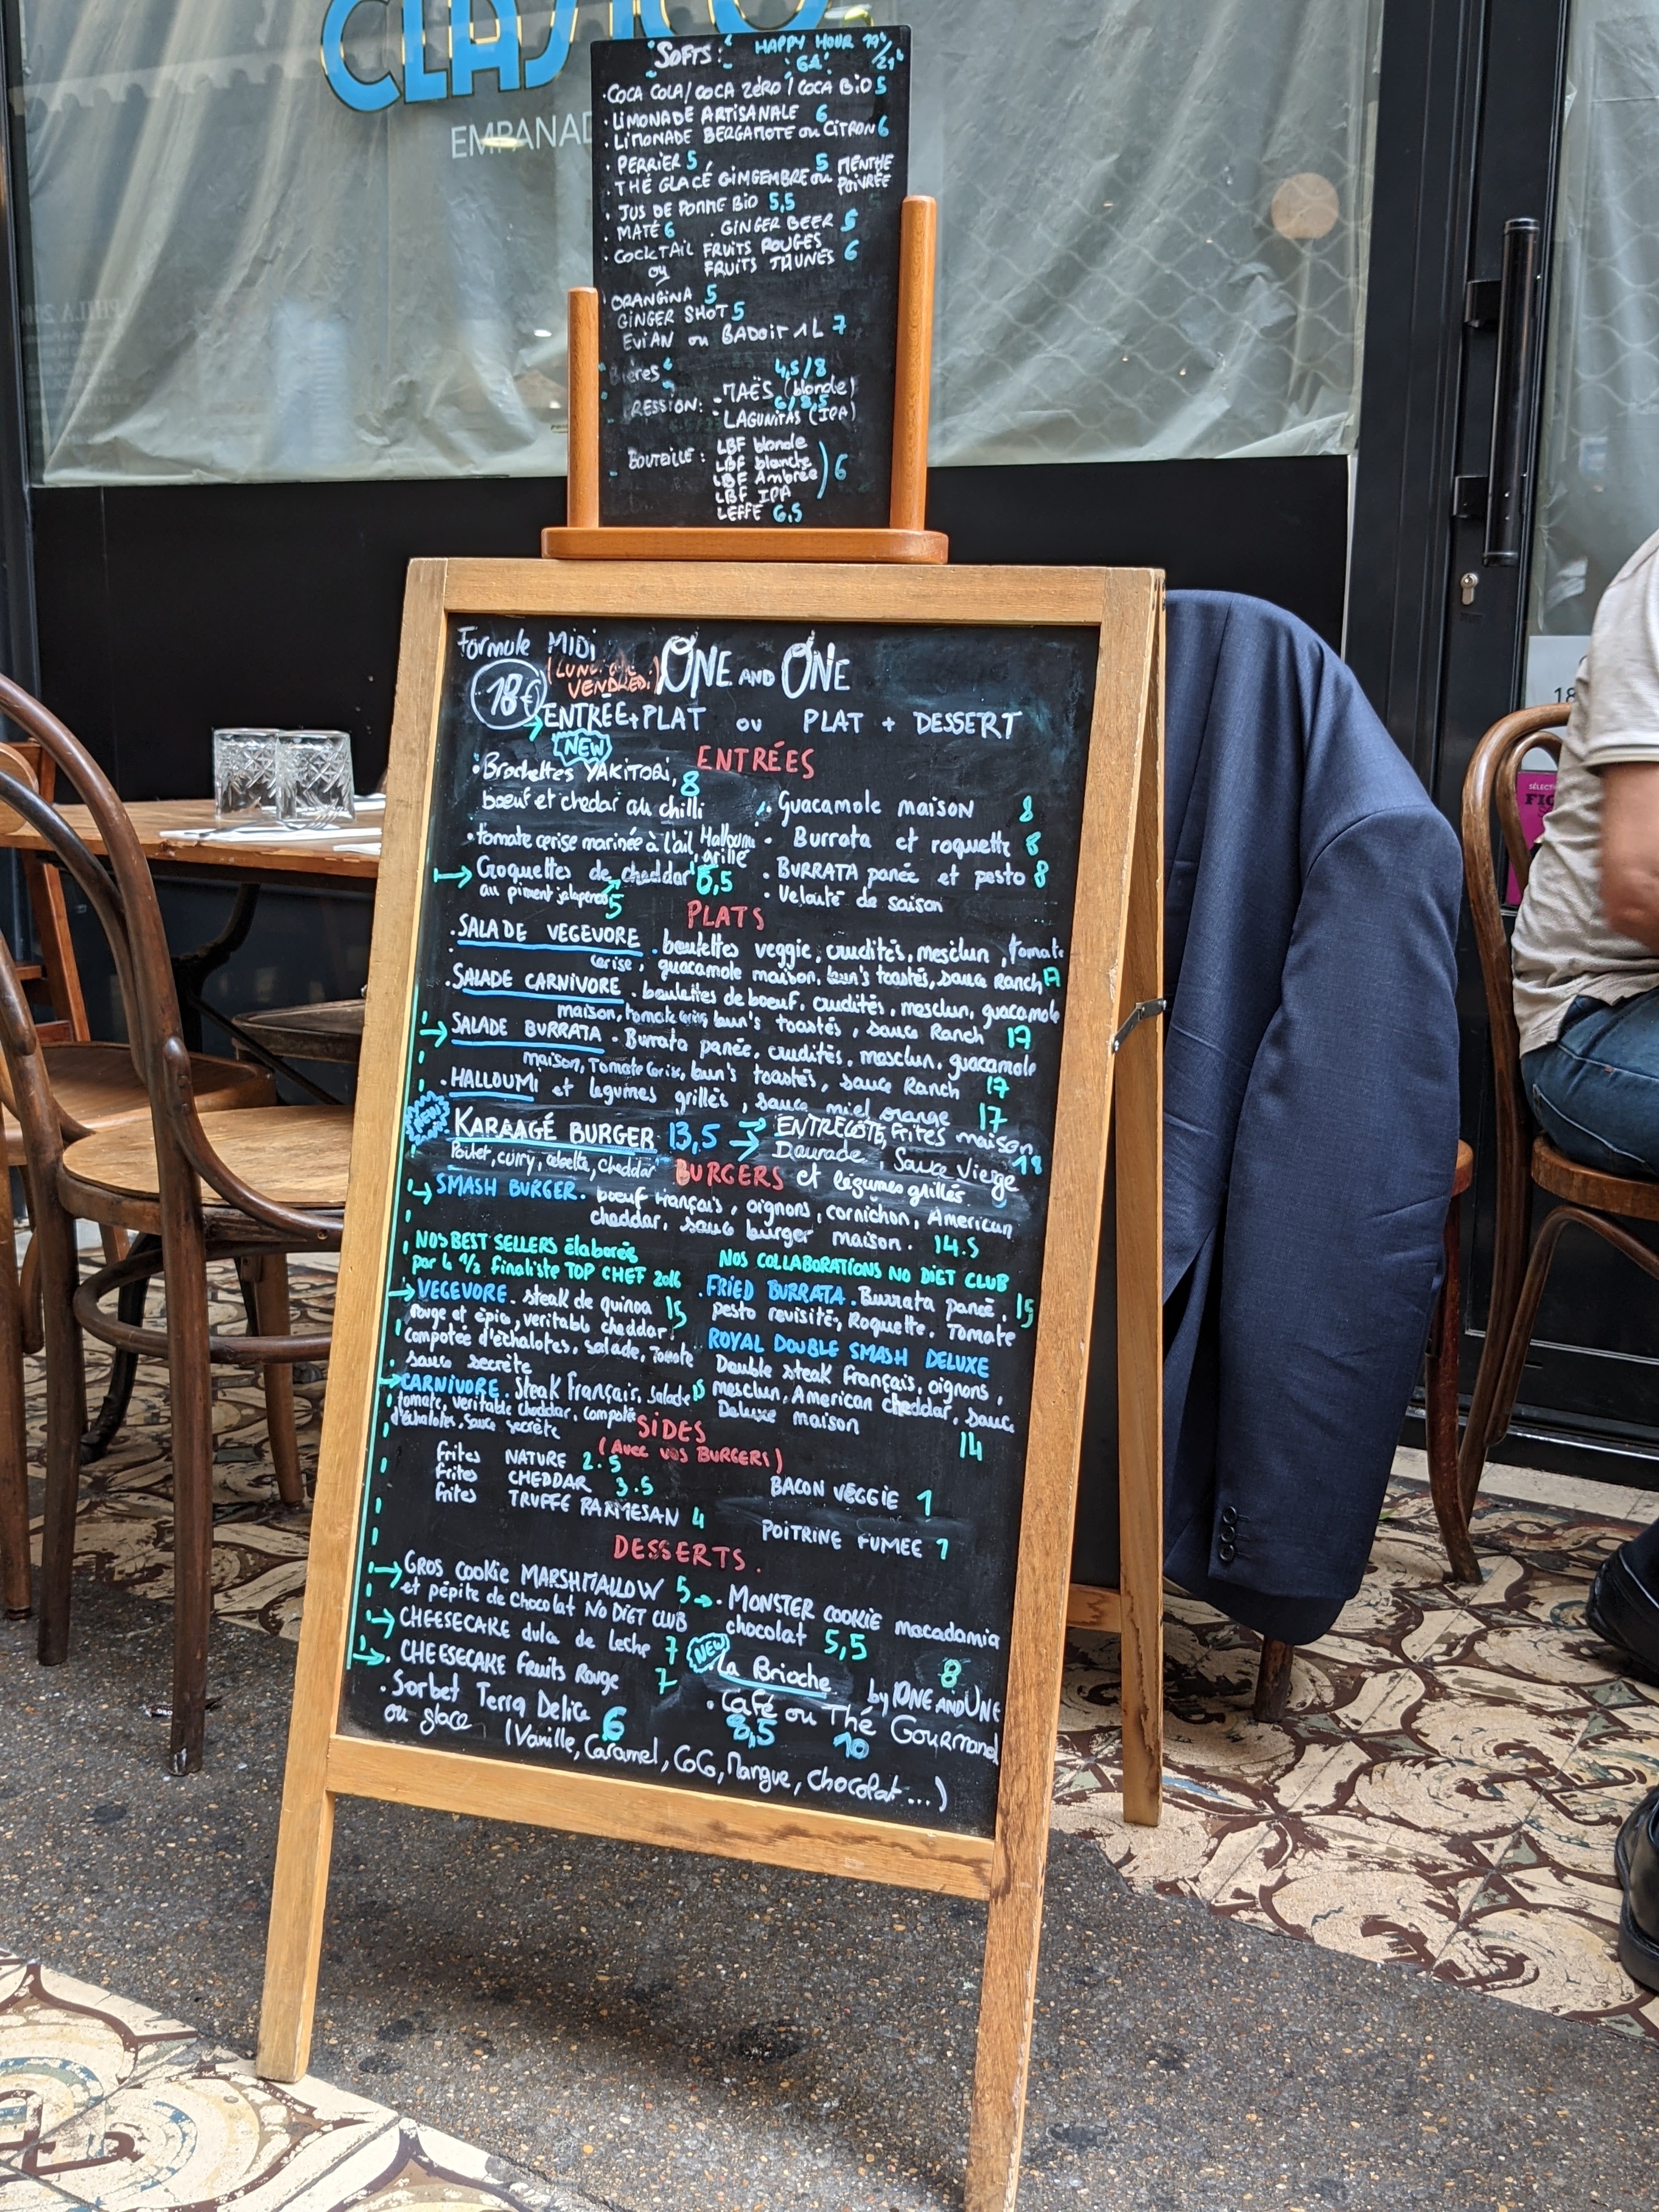 CLASICO
EMPANAD
"SOFTS:" HAPPY HOUR 19h/21h
6€
• COCA COLA / COCA ZÉRO / COCA BIO 5
• LIMONADE ARTISANALE 6
• LIMONADE BERGAMOTE ou CITRON 6
• PERRIER 5
• THÉ GLACÉ GIMGEMBRE ou MENTHE POIVRÉE 5
• JUS DE POMME BIO 5,5
• MATÉ 6 • GINGER BEER 5
• COCKTAIL FRUITS ROUGES
ou FRUITS JAUNES 6
ORANGINA 5
GINGER SHOT 5
EVIAN ou BADOIT 1L 7
ières
4,5/8
RESSION: - MAËS (blonde)
6/8,5
- LAGUNITAS (IPA)
BOUTEILLE: LBF blonde
LBF blanche
LBF Ambrée
LBF IPA
6
LEFFE 6,5
Formule MIDI
(LUNDI
VENDREDI)
18€
ONE AND ONE
ENTRÉE + PLAT ou PLAT + DESSERT
NEW
ENTRÉES
• Brochettes YAKITORI, 8
boeuf et chedar au chilli
• tomate cerise marinée à l'ail Halloumi grillé
Croquettes de cheddar 6,5
au piment jalapenos 5
• Guacamole maison 8
• Burrata et roquette 8
• BURRATA panée et pesto 8
• Velouté de saison
PLATS
• SALADE VEGEVORE • boulettes veggie, crudités, mesclun, tomate
cerise, guacamole maison, bun's toastés, sauce Ranch 17
• SALADE CARNIVORE • boulettes de boeuf, crudités, mesclun, guacamole
maison, tomate cerise, bun's toastés, sauce Ranch 17
SALADE BURRATA • Burrata panée, crudités, mesclun, guacamole
maison, Tomate Cerise, bun's toastés, sauce Ranch 17
• HALLOUMI et légumes grillés, sauce miel orange 17
NEW
KARAAGÉ BURGER 13,5
Poulet, curry, cebette, cheddar
ENTRECÔTE, Frites maison
Daurade, Sauce Vierge 18
et légumes grillés
BURGERS
SMASH BURGER • boeuf Français, oignons, cornichon, American
cheddar, sauce burger maison. 14.5
NOS BEST SELLERS élaborés
par le 1/2 finaliste TOP CHEF 2016
VEGEVORE • steak de quinoa 15
rouge et épice, veritable cheddar,
compotée d'échalotes, salade, Tomate
sauce secrète
CARNIVORE • Steak Français, salade 15
tomate, veritable cheddar, compotée
d'échalotes, sauce secrète
NOS COLLABORATIONS NO DIET CLUB
• FRIED BURRATA • Burrata panée, 15
pesto revisité, Roquette, Tomate
ROYAL DOUBLE SMASH DELUXE
Double steak Français, oignons,
mesclun, American cheddar, sauce
Deluxe maison
14
SIDES
(Avec vos BURGERS)
frites NATURE 2.5
frites CHEDDAR 3.5
frites TRUFFE PARMESAN 4
BACON VEGGIE 1
POITRINE FUMEE 1
DESSERTS.
GROS COOKIE MARSHMALLOW 5
et pépite de Chocolat NO DIET CLUB
CHEESECAKE dulce de leche 7
• CHEESECAKE Fruits Rouge 7
• Sorbet Terra Delice 6
ou glace (Vanille, Caramel, CoCo, Mangue, Chocolat...)
• MONSTER COOKIE macadamia
chocolat 5,5
NEW
La Brioche 8
by ONE AND ONE
• Café ou Thé Gourmand
8,5 10